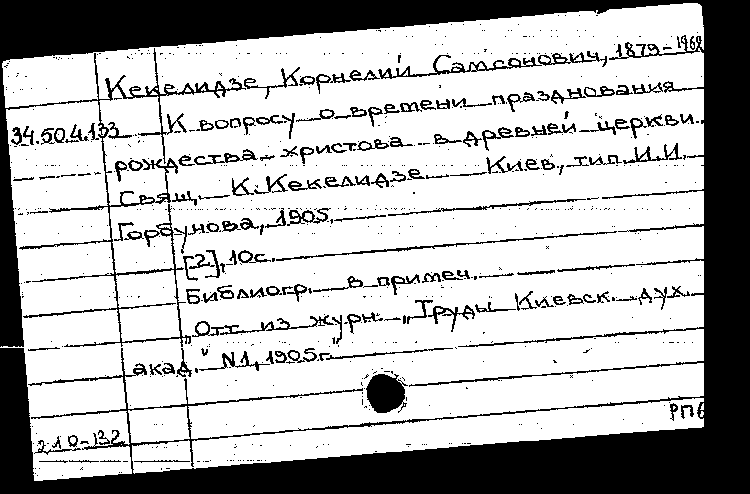 Кекелидзе, Корнелий Самсонович, 1879-1962
34.50.4.133 К вопросу о времени празднования
рождества христова в древней церкви.
Свящ. К. Кекелидзе. Киев, тип. И.И.
Горбунова, 1905.
[2], 10с.
Библиогр. в примеч.
„Отт. из журн. „Труды Киевск. дух.
акад." N1, 1905г."
210-132
РПБ